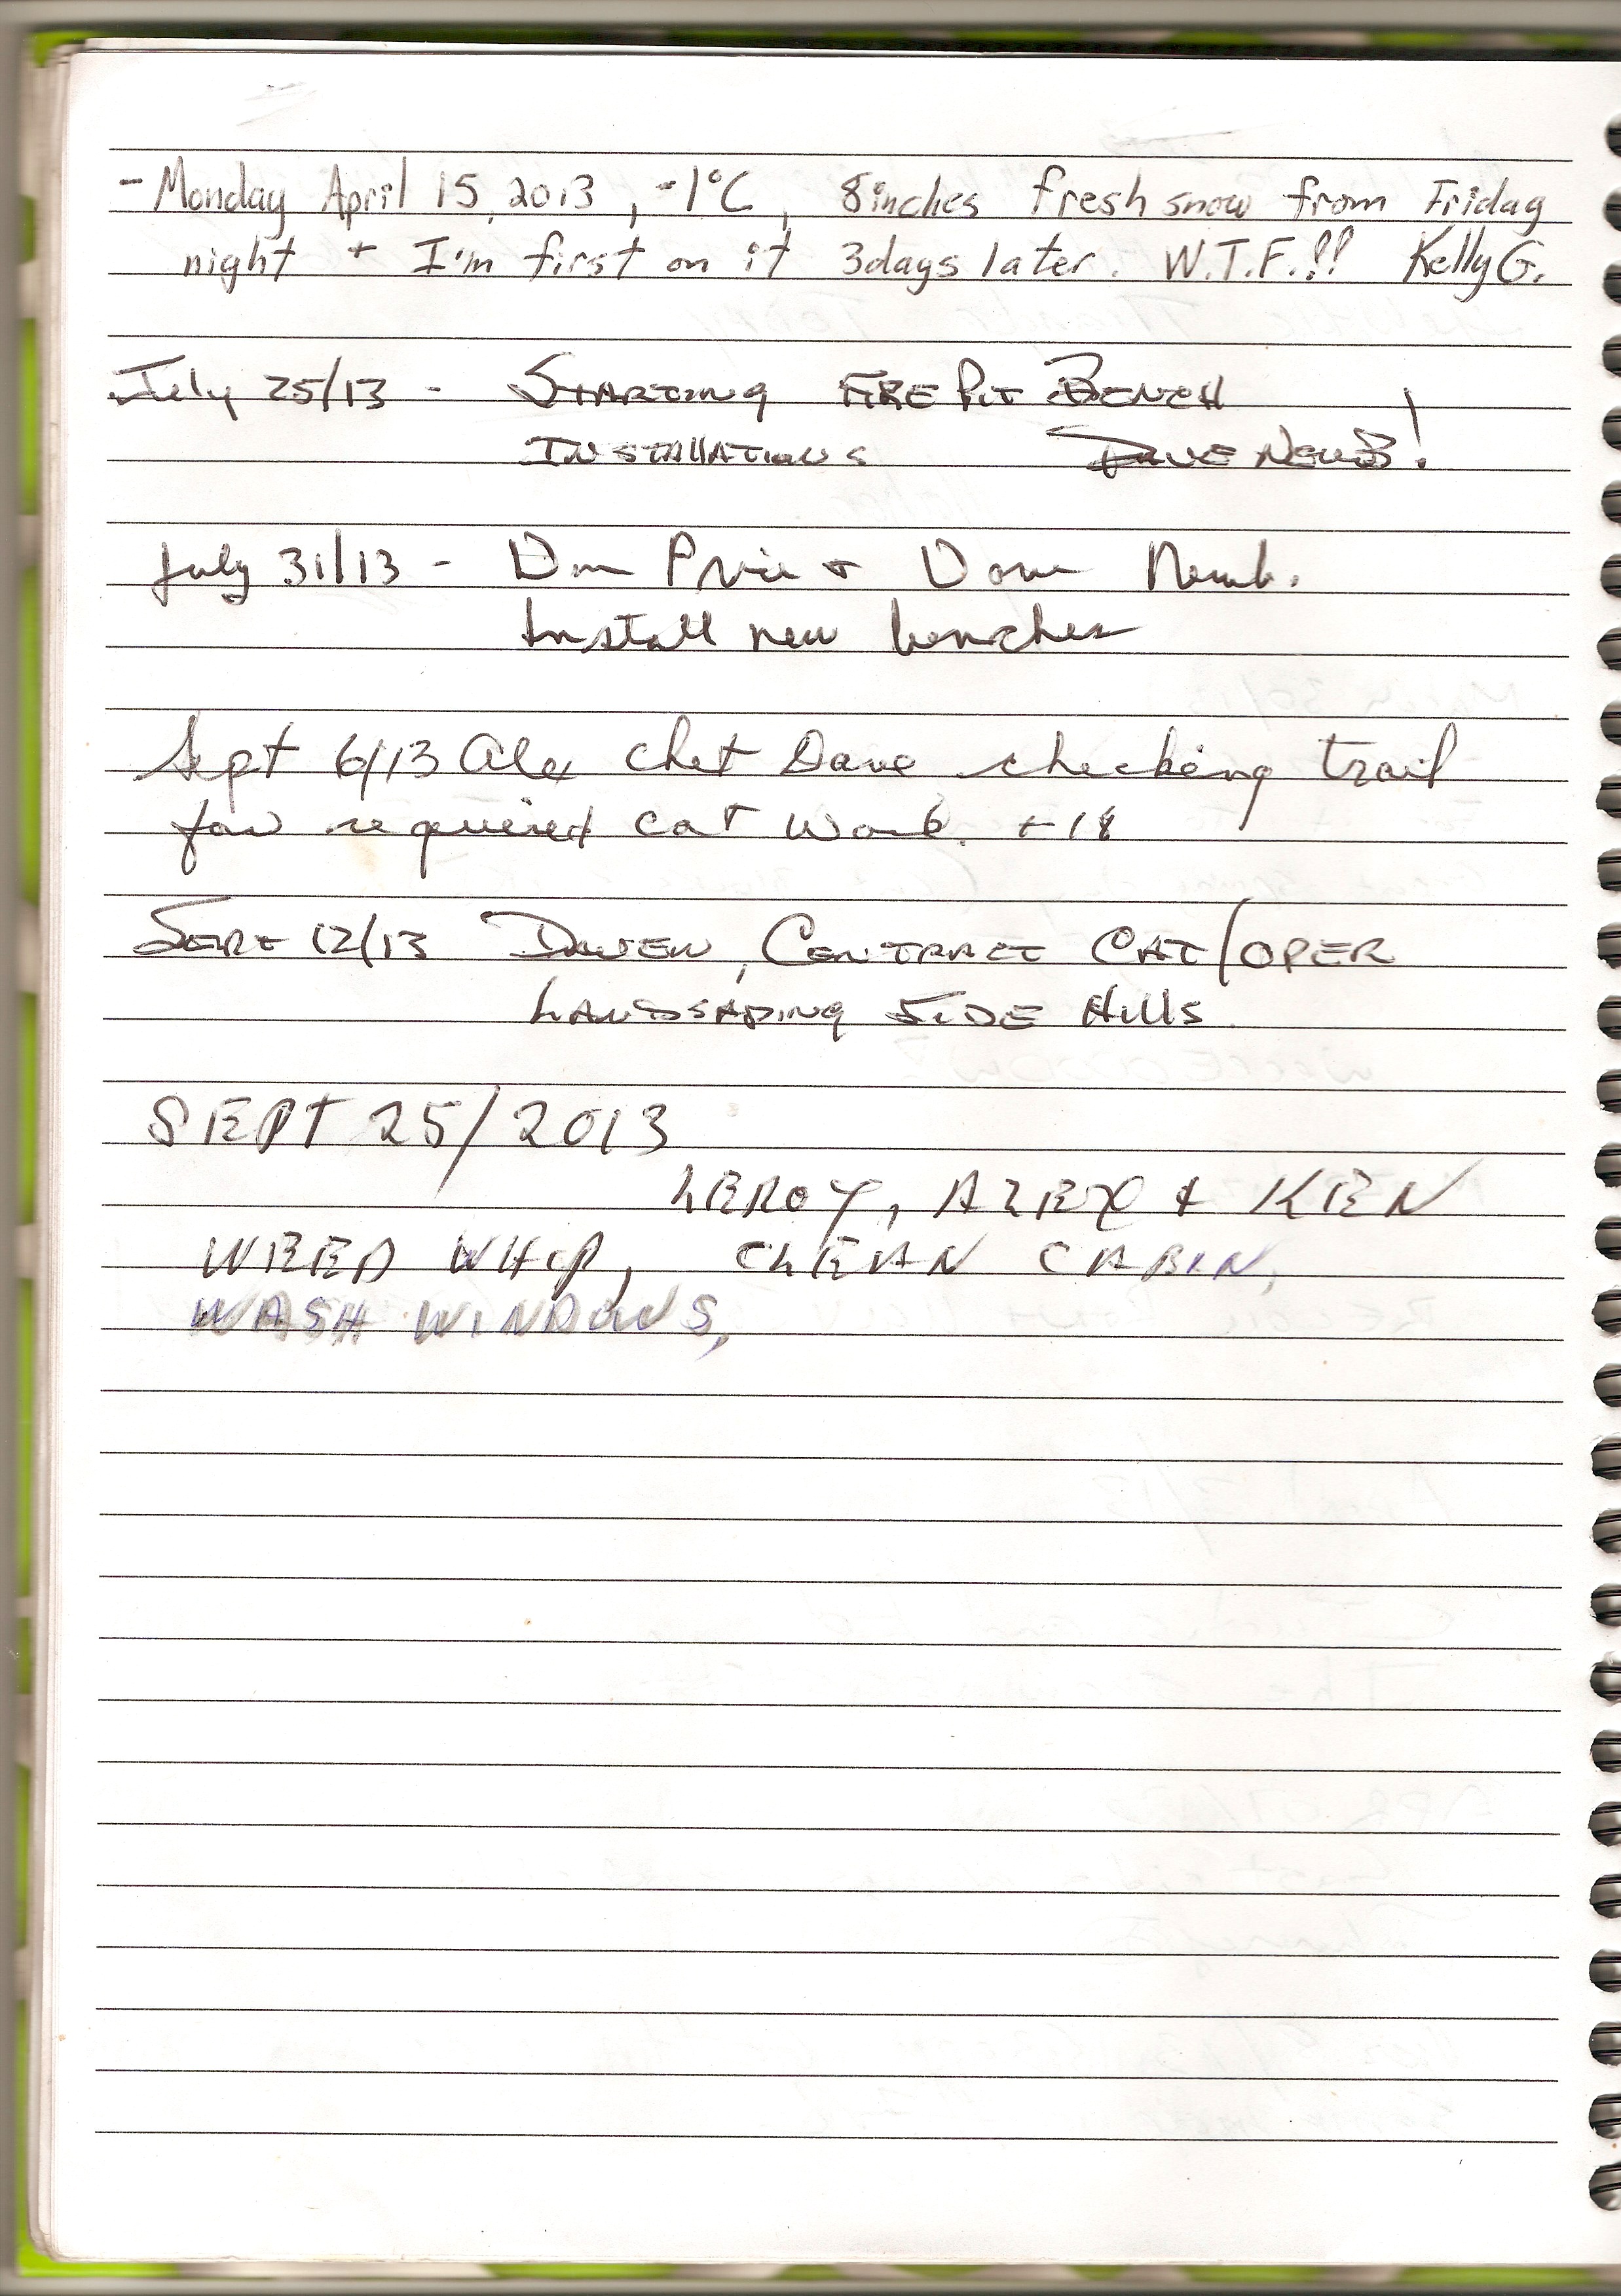 - Monday April 15, 2013, -1°C, 8inches fresh snow from Friday
night + I'm first on it 3days later. W.T.F.!! Kelly G.
July 25/13 - STARTING FIRE PIT BENCH
INSTALLATIONS DAVE NEWB!
July 31/13 - Don Price + Dave Newb.
Install new benches
Sept 6/13 Alex Chet Dave checking trail
for required cat work. +18
SEPT 12/13 DAVEN, CONTRACT CAT/OPER
LANDSAPING SIDE HILLS
SEPT 25/2013
LEROY, ALEX + KEN
WEED WHIP, CLEAN CABIN,
WASH WINDOWS,